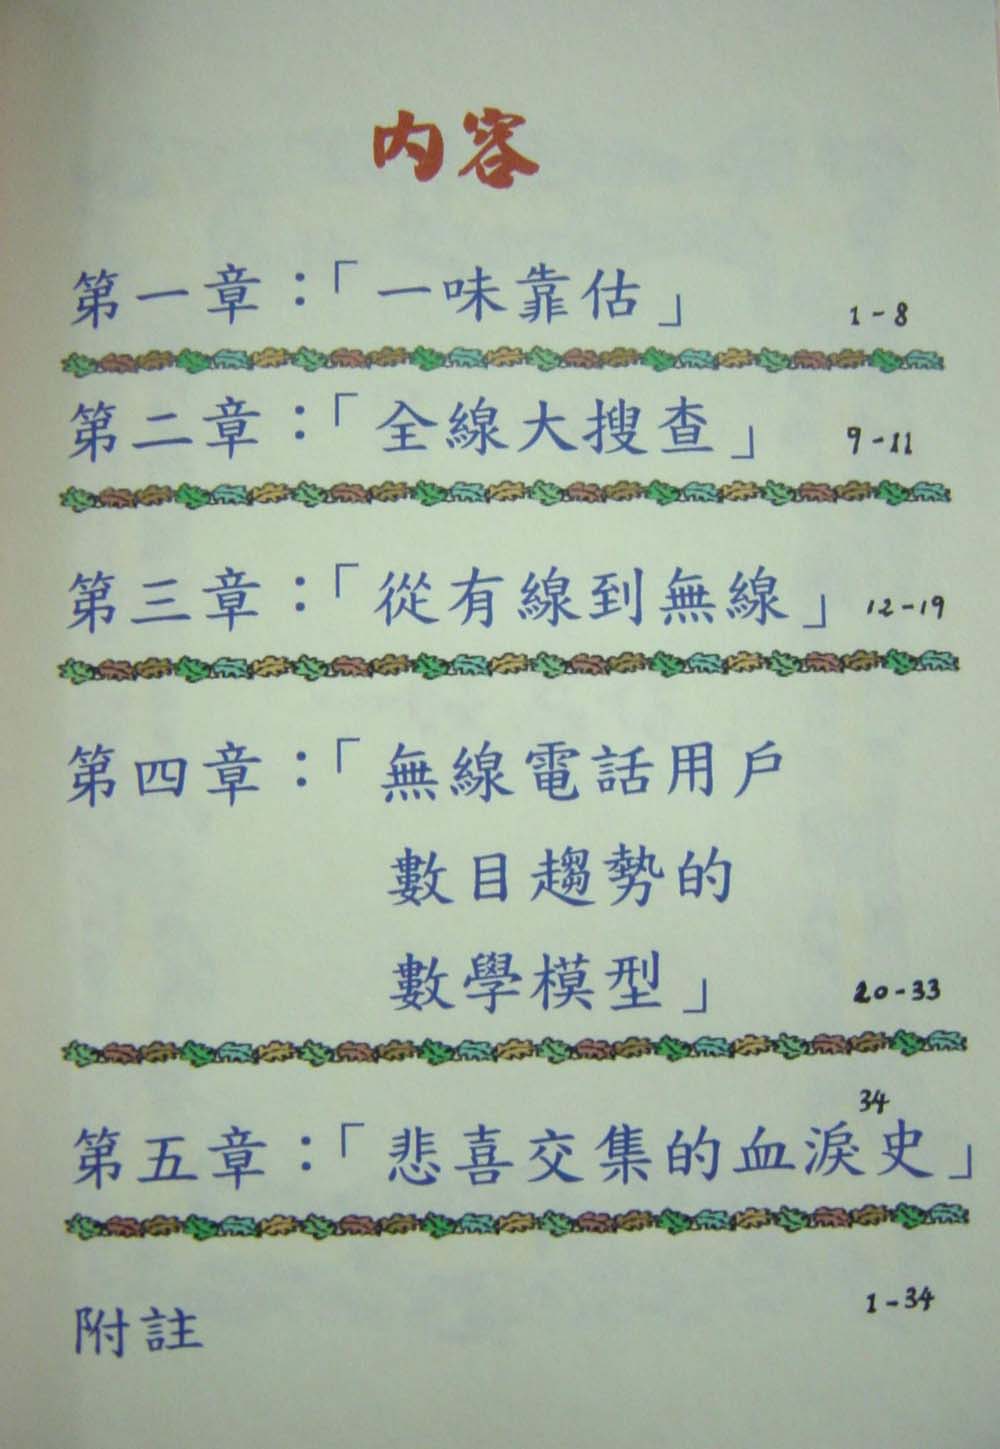 內容
第一章：「一味靠估」 1-8
第二章：「全線大搜查」 9-11
第三章：「從有線到無線」 12-19
第四章：「無線電話用戶
數目趨勢的
數學模型」 20-33
34
第五章：「悲喜交集的血淚史」
1-34
附註